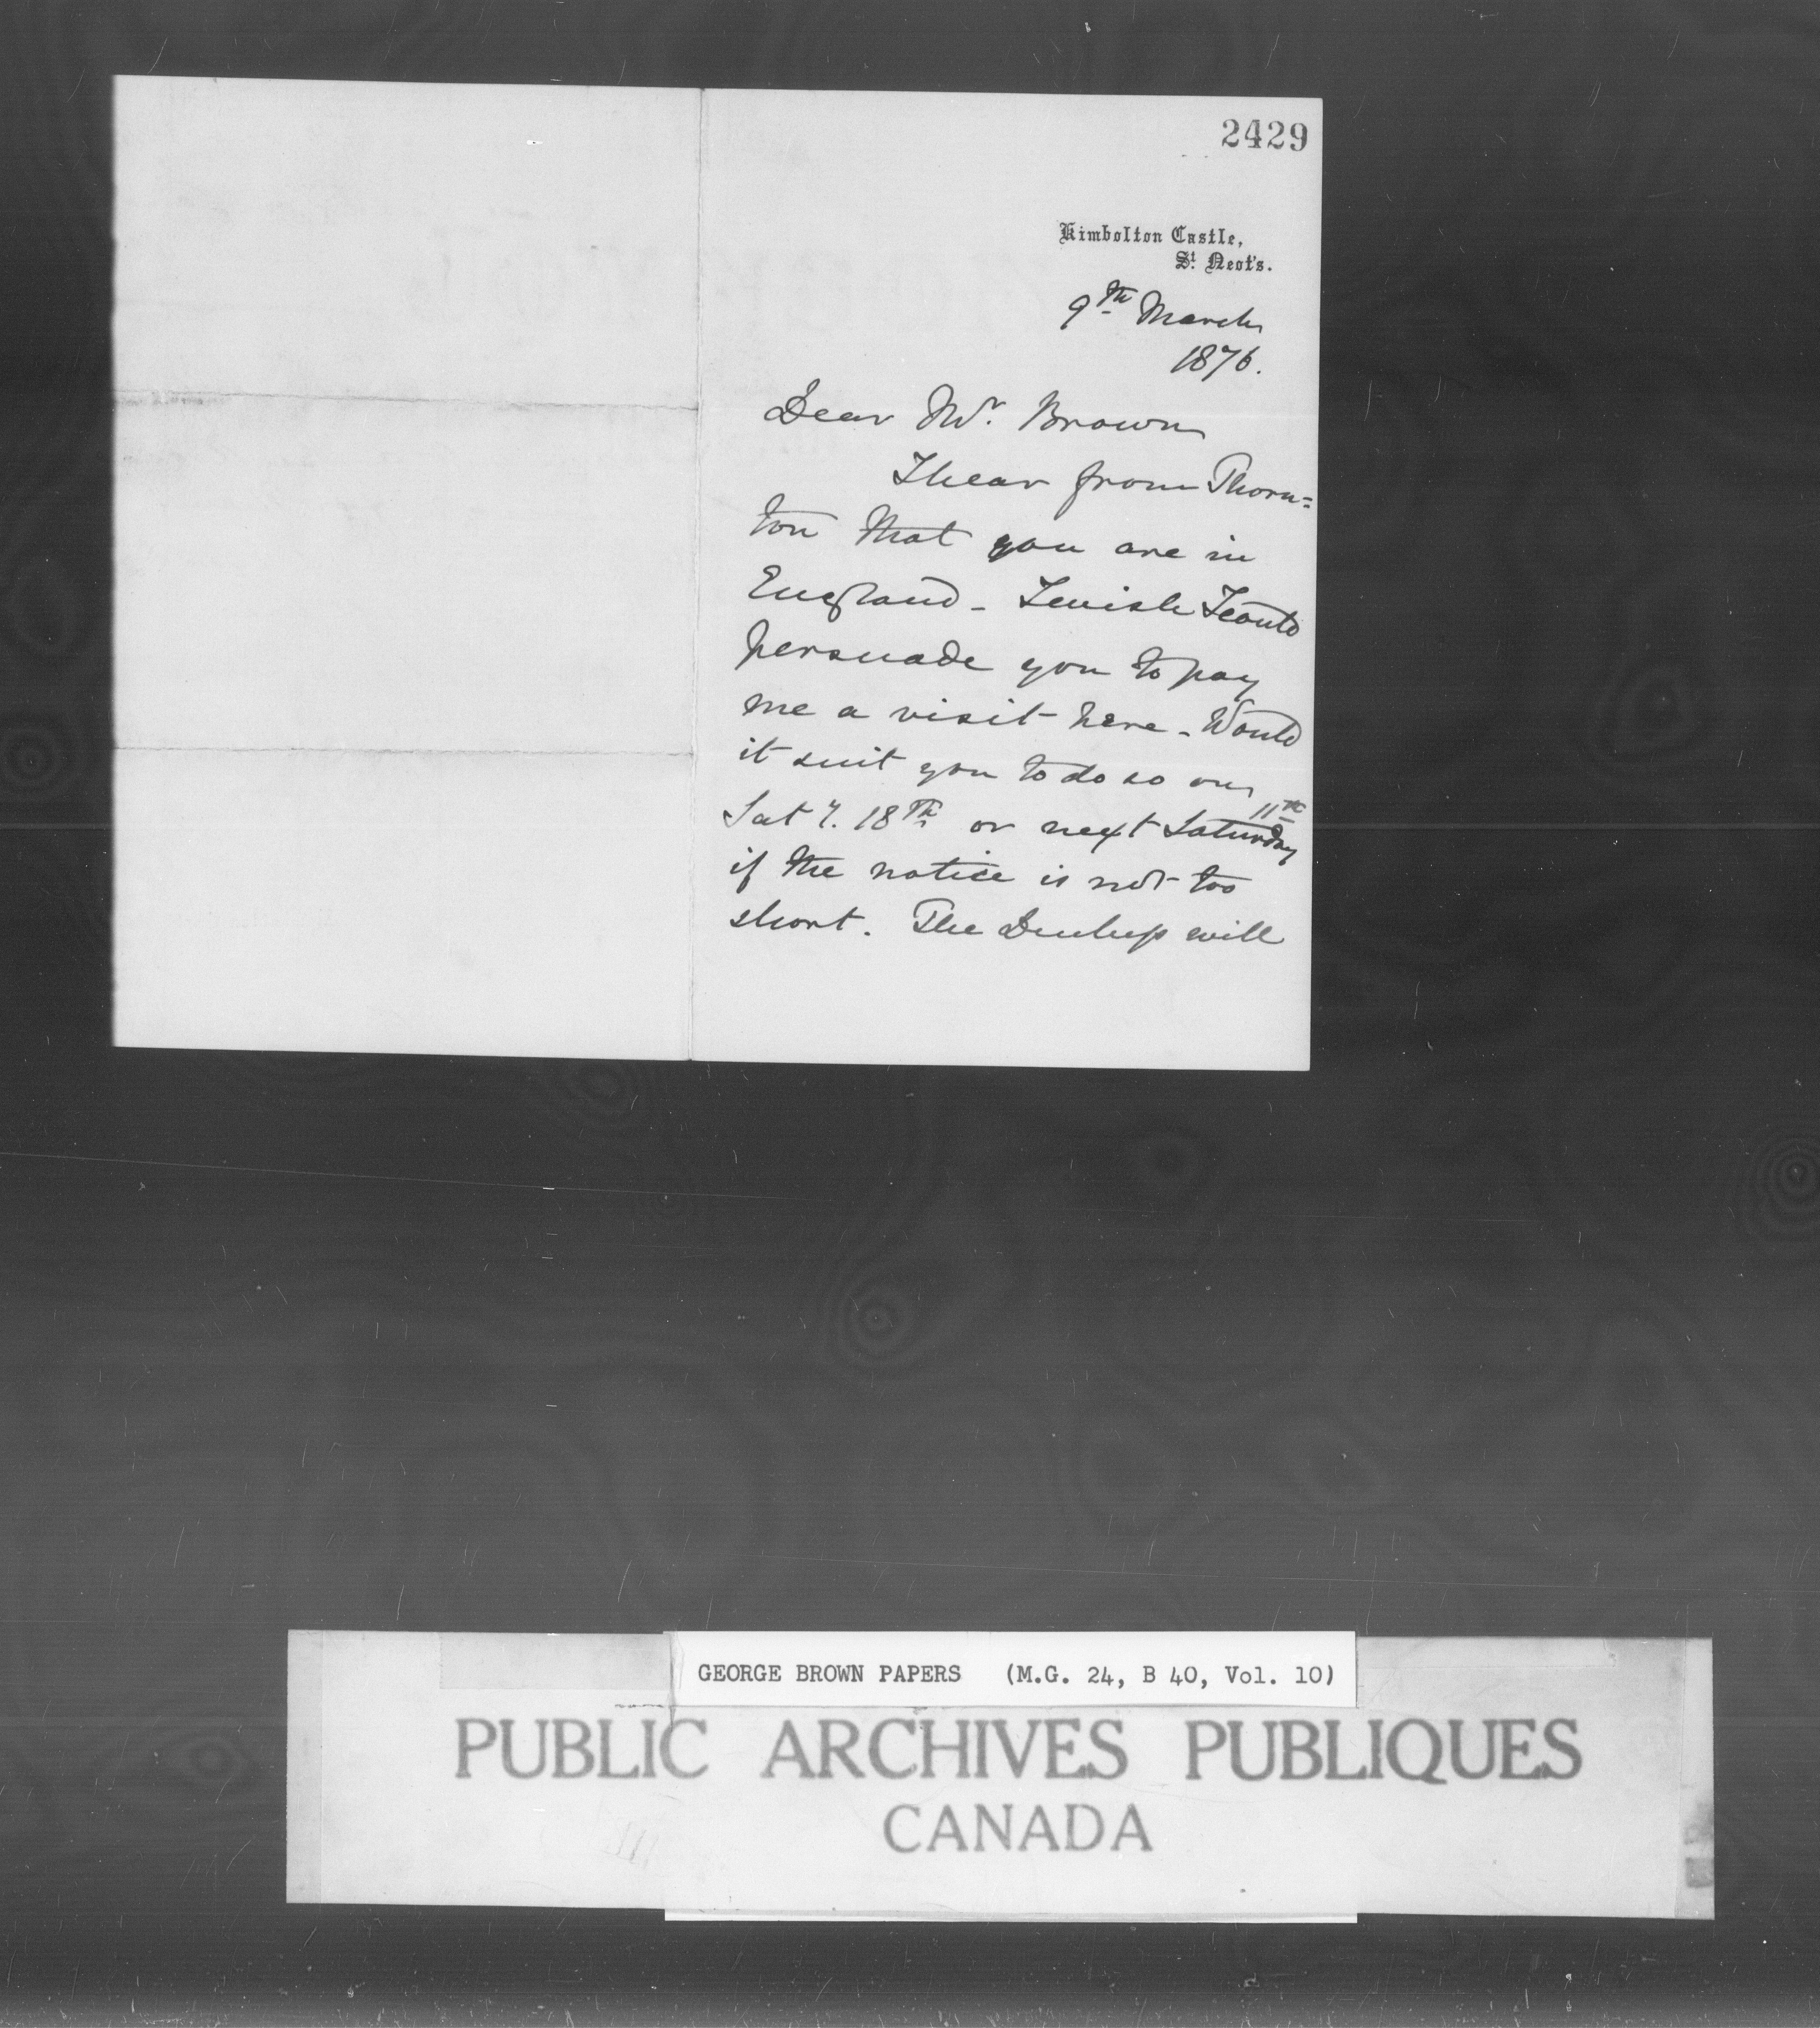 2429
Kimbolton Castle,
St. Neot's.
9th March
1876.
Dear Mr. Brown
I hear from Thorn=
ton that you are in
England - I wish I could
persuade you to pay
me a visit here - Would
it suit you to do so on
Saty. 18th or next Saturday 11th
if the notice is not too
short. The will
GEORGE BROWN PAPERS (M.G. 24, B 40, Vol. 10)
PUBLIC ARCHIVES PUBLIQUES
CANADA